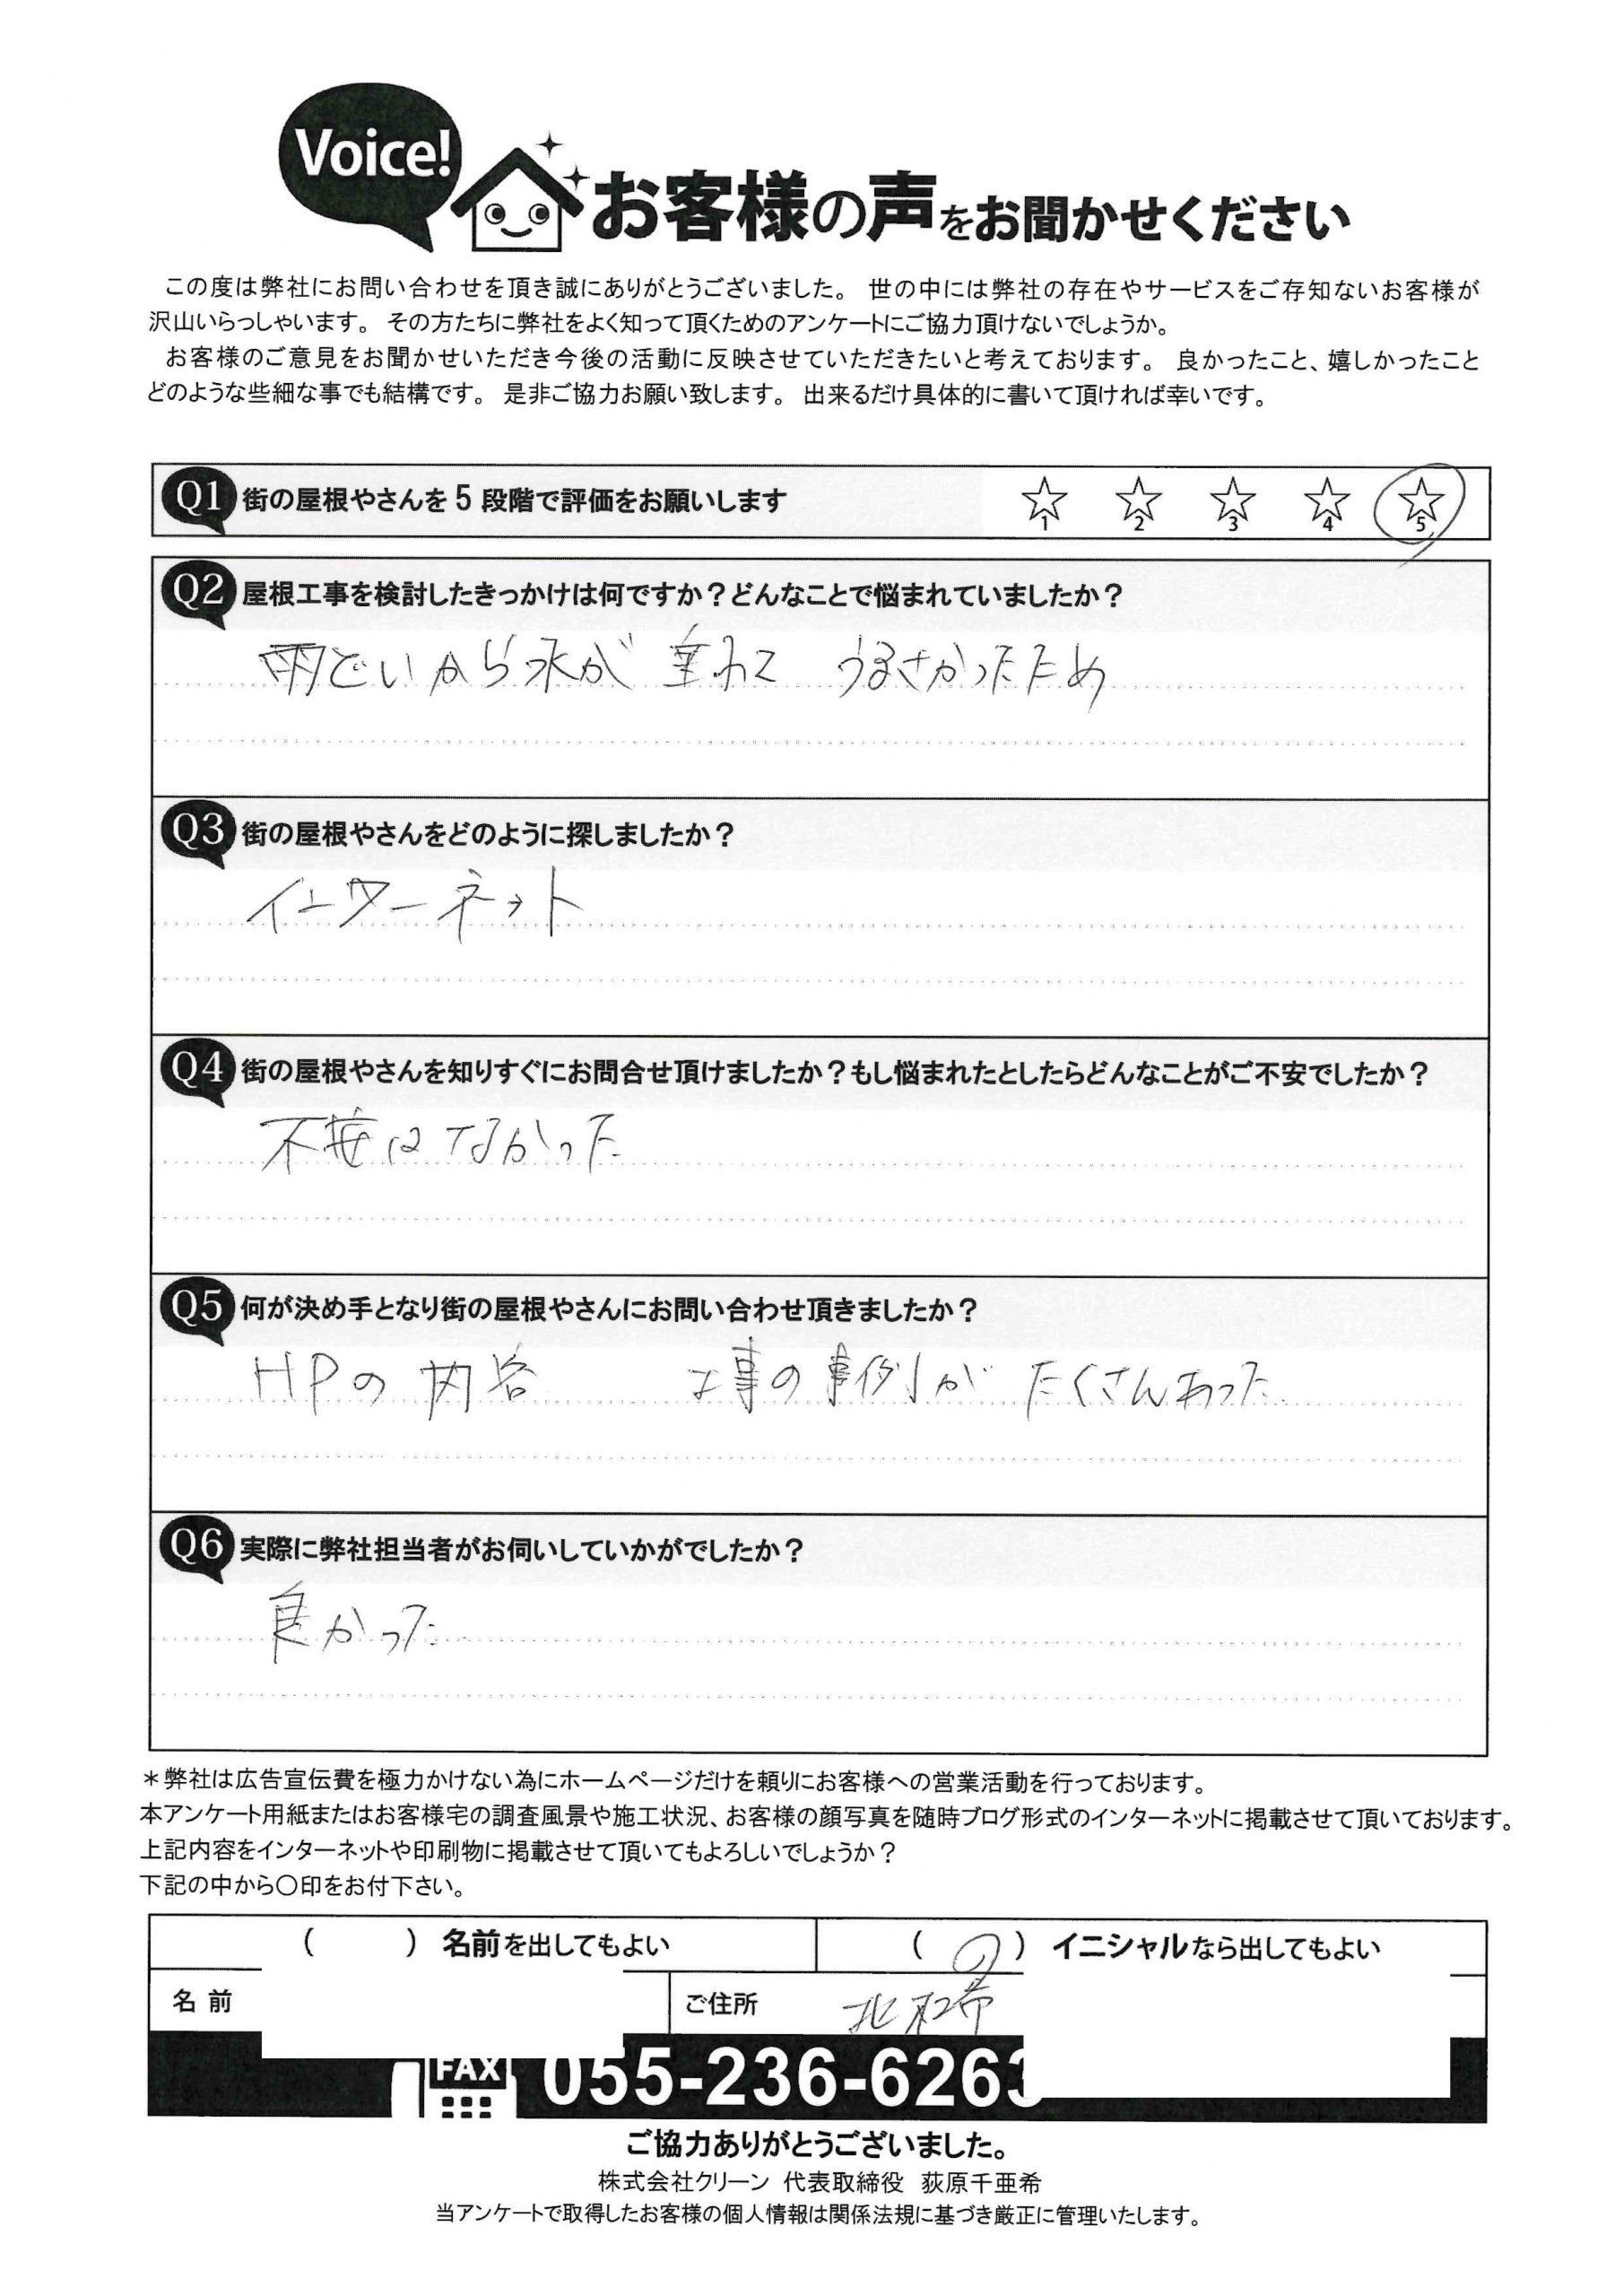 Voice!
お客様の声をお聞かせください
この度は弊社にお問い合わせを頂き誠にありがとうございました。 世の中には弊社の存在やサービスをご存知ないお客様が
沢山いらっしゃいます。 その方たちに弊社をよく知って頂くためのアンケートにご協力頂けないでしょうか。
お客様のご意見をお聞かせいただき今後の活動に反映させていただきたいと考えております。 良かったこと、嬉しかったこと
どのような些細な事でも結構です。 是非ご協力お願い致します。 出来るだけ具体的に書いて頂ければ幸いです。
Q1 街の屋根やさんを5段階で評価をお願いします ☆1 ☆2 ☆3 ☆4 ☆5
Q2 屋根工事を検討したきっかけは何ですか？どんなことで悩まれていましたか？
雨どいから水が 垂れて うるさかったため
Q3 街の屋根やさんをどのように探しましたか？
インターネット
Q4 街の屋根やさんを知りすぐにお問合せ頂けましたか？もし悩まれたとしたらどんなことがご不安でしたか？
不安はなかった
Q5 何が決め手となり街の屋根やさんにお問い合わせ頂きましたか？
HPの内容 工事の事例が たくさんあった
Q6 実際に弊社担当者がお伺いしていかがでしたか？
良かった
＊弊社は広告宣伝費を極力かけない為にホームページだけを頼りにお客様への営業活動を行っております。
本アンケート用紙またはお客様宅の調査風景や施工状況、お客様の顔写真を随時ブログ形式のインターネットに掲載させて頂いております。
上記内容をインターネットや印刷物に掲載させて頂いてもよろしいでしょうか？
下記の中から○印をお付下さい。
（　　）名前を出してもよい （○）イニシャルなら出してもよい
名前 ご住所 北杜市
FAX 055-236-6263
ご協力ありがとうございました。
株式会社クリーン 代表取締役 荻原千亜希
当アンケートで取得したお客様の個人情報は関係法規に基づき厳正に管理いたします。